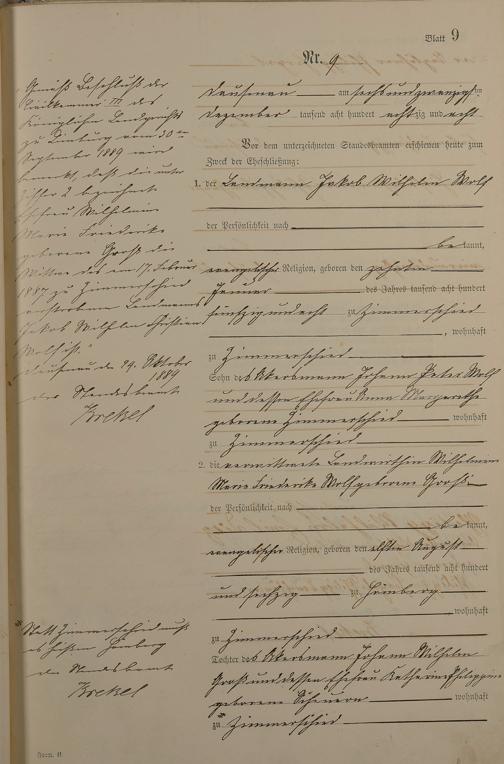 Blatt 9
Nr. 9
Dausenau am sechsundzwanzigsten
Dezember tausend acht hundert achtzig und acht
Vor dem unterzeichneten Standesbeamten erschienen heute zum
Zweck der Eheschließung:
1. der Landmann Jakob Wilhelm Wolf
der Persönlichkeit nach
be kannt,
evangelischer Religion, geboren den zehnten
Januar des Jahres tausend acht hundert
fünfzig und acht zu Zimmerschied
, wohnhaft
zu Zimmerschied
Sohn des Ackersmann Johann Peter Wolf
und dessen Ehefrau Anna Margarethe
geborene Zimmerschied wohnhaft
zu Zimmerschied
2. die verwittwete Landwirthin Wilhelmine
Marie Friederike Wolf geborene Groß
der Persönlichkeit nach
be kannt,
evangelischer Religion, geboren den elften August
des Jahres tausend acht hundert
und sechzig zu Hömberg
wohnhaft
zu Zimmerschied
Tochter des Ackersmann Johann Wilhelm
Groß und dessen Ehefrau Katharine Philippine
geborene wohnhaft
zu Zimmerschied
Gemäß Beschluß der
Civilkammer III des
Königlichen Landgerichts
zu Limburg vom 30ten
September 1889 wird
bemerkt, daß die unter
Ziffer 2 bezeichnete
Ehefrau Wilhelmine
Marie Friederike
geborene Groß die
Wittwe des am 17. Februar
1887 zu Zimmerschied
verstorbenen Landmanns
Jakob Wilhelm Christian
Wolf ist."
Dausenau den 29. Oktober
1889
der Standesbeamte
Krekel
Statt Zimmerschied muß
es heißen Hömberg
der Standesbeamte
Krekel
Form. B